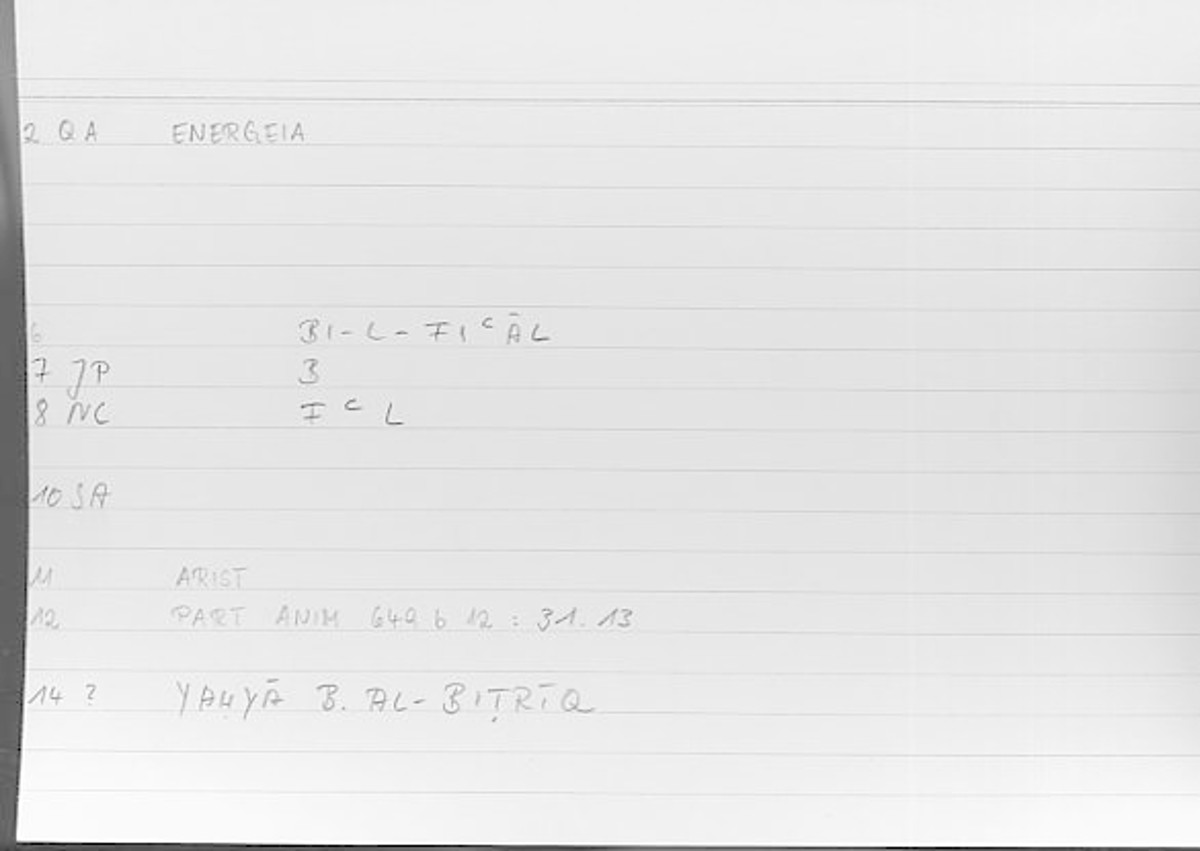 2 QA ENERGEIA
6 BI-L-FIᶜĀL
7 JP B
8 NC F ᶜ L
10 SA
11 ARIST
12 PART ANIM 649 b 12 : 31.13
14 ? YAḤYĀ B. AL-BIṬRĪQ